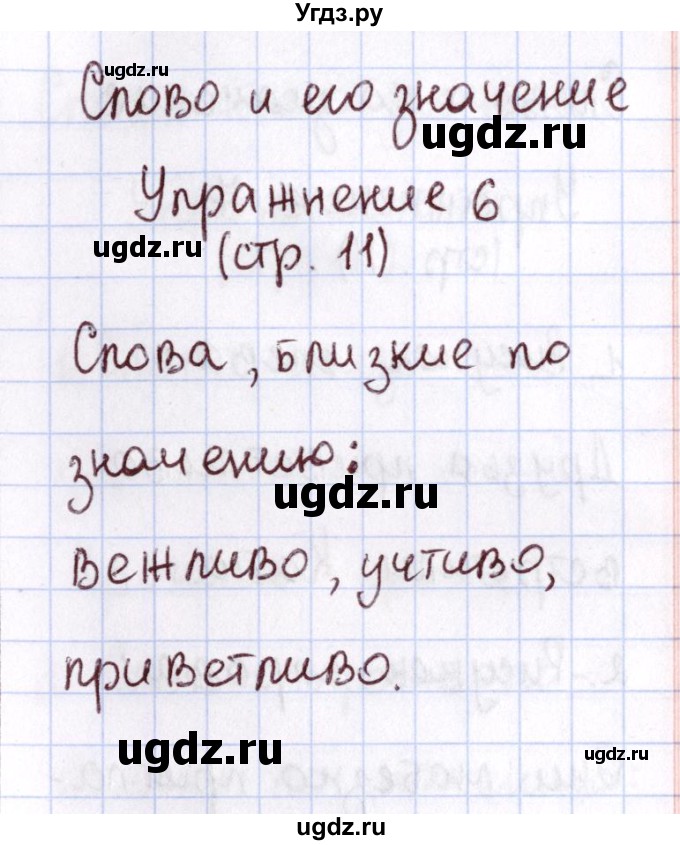 Угдз.ру
ugdz.ru
Слово и его значение
ugdz.ru
Упражнение 6
ugdz.ru
(стр. 11)
Слова, близкие по
значению:
ugdz.ru
вежливо, учтиво,
приветливо.
ugdz.ru
ugdz.ru
ugdz.ru